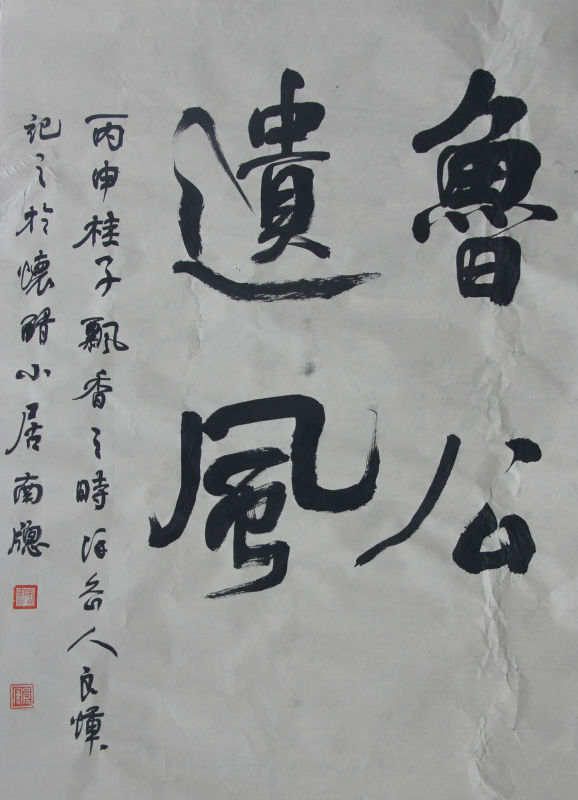 魯公
遺風
丙申桂子飄香之時 人良煇
記之於懷醋小居南牕